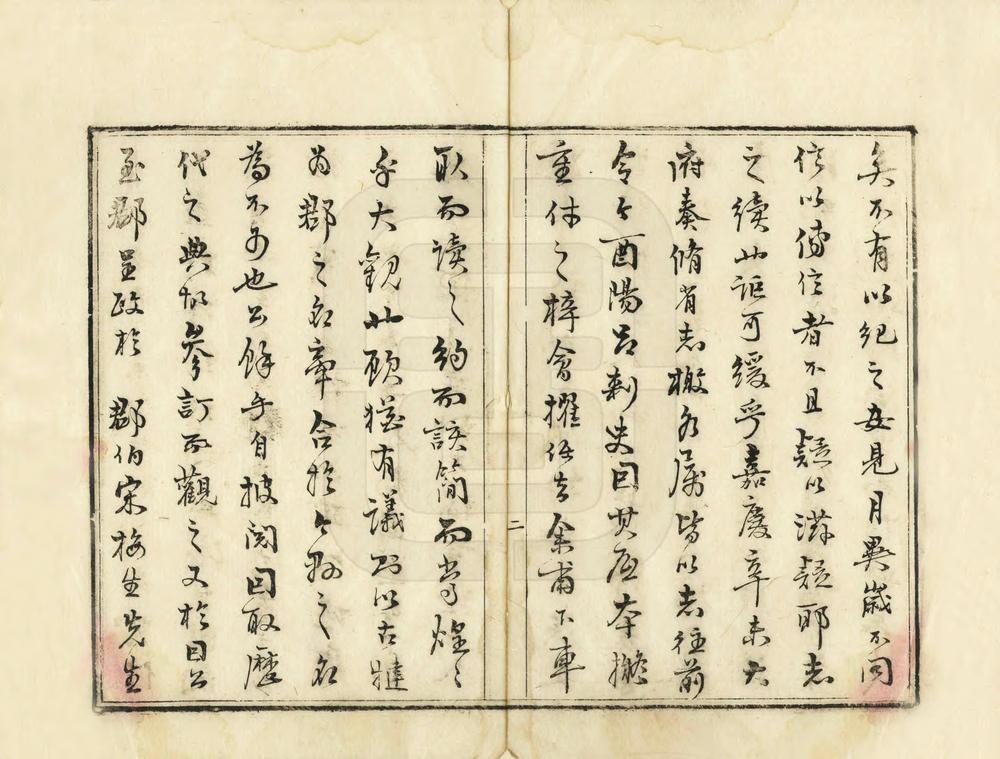 矣不有以紀之安見月異歲不同
信以傳信者不且疑以滋疑耶志
之續此詎可緩乎嘉慶辛未大
府奏脩省志檄各屬皆以志往前
令令酉陽呂刺史因其廢本擴
重付之梓會擢任去余甫下車
二
取而读之約而該簡而當煌〻
乎大觀此頋猶有議昂以古揵
为郡之名牽合於今縣之名
為不可也公餘手自披閱因取歷
代之典故參訂而觀之又於因公
至郡呈政於 郡伯宋梅生先生